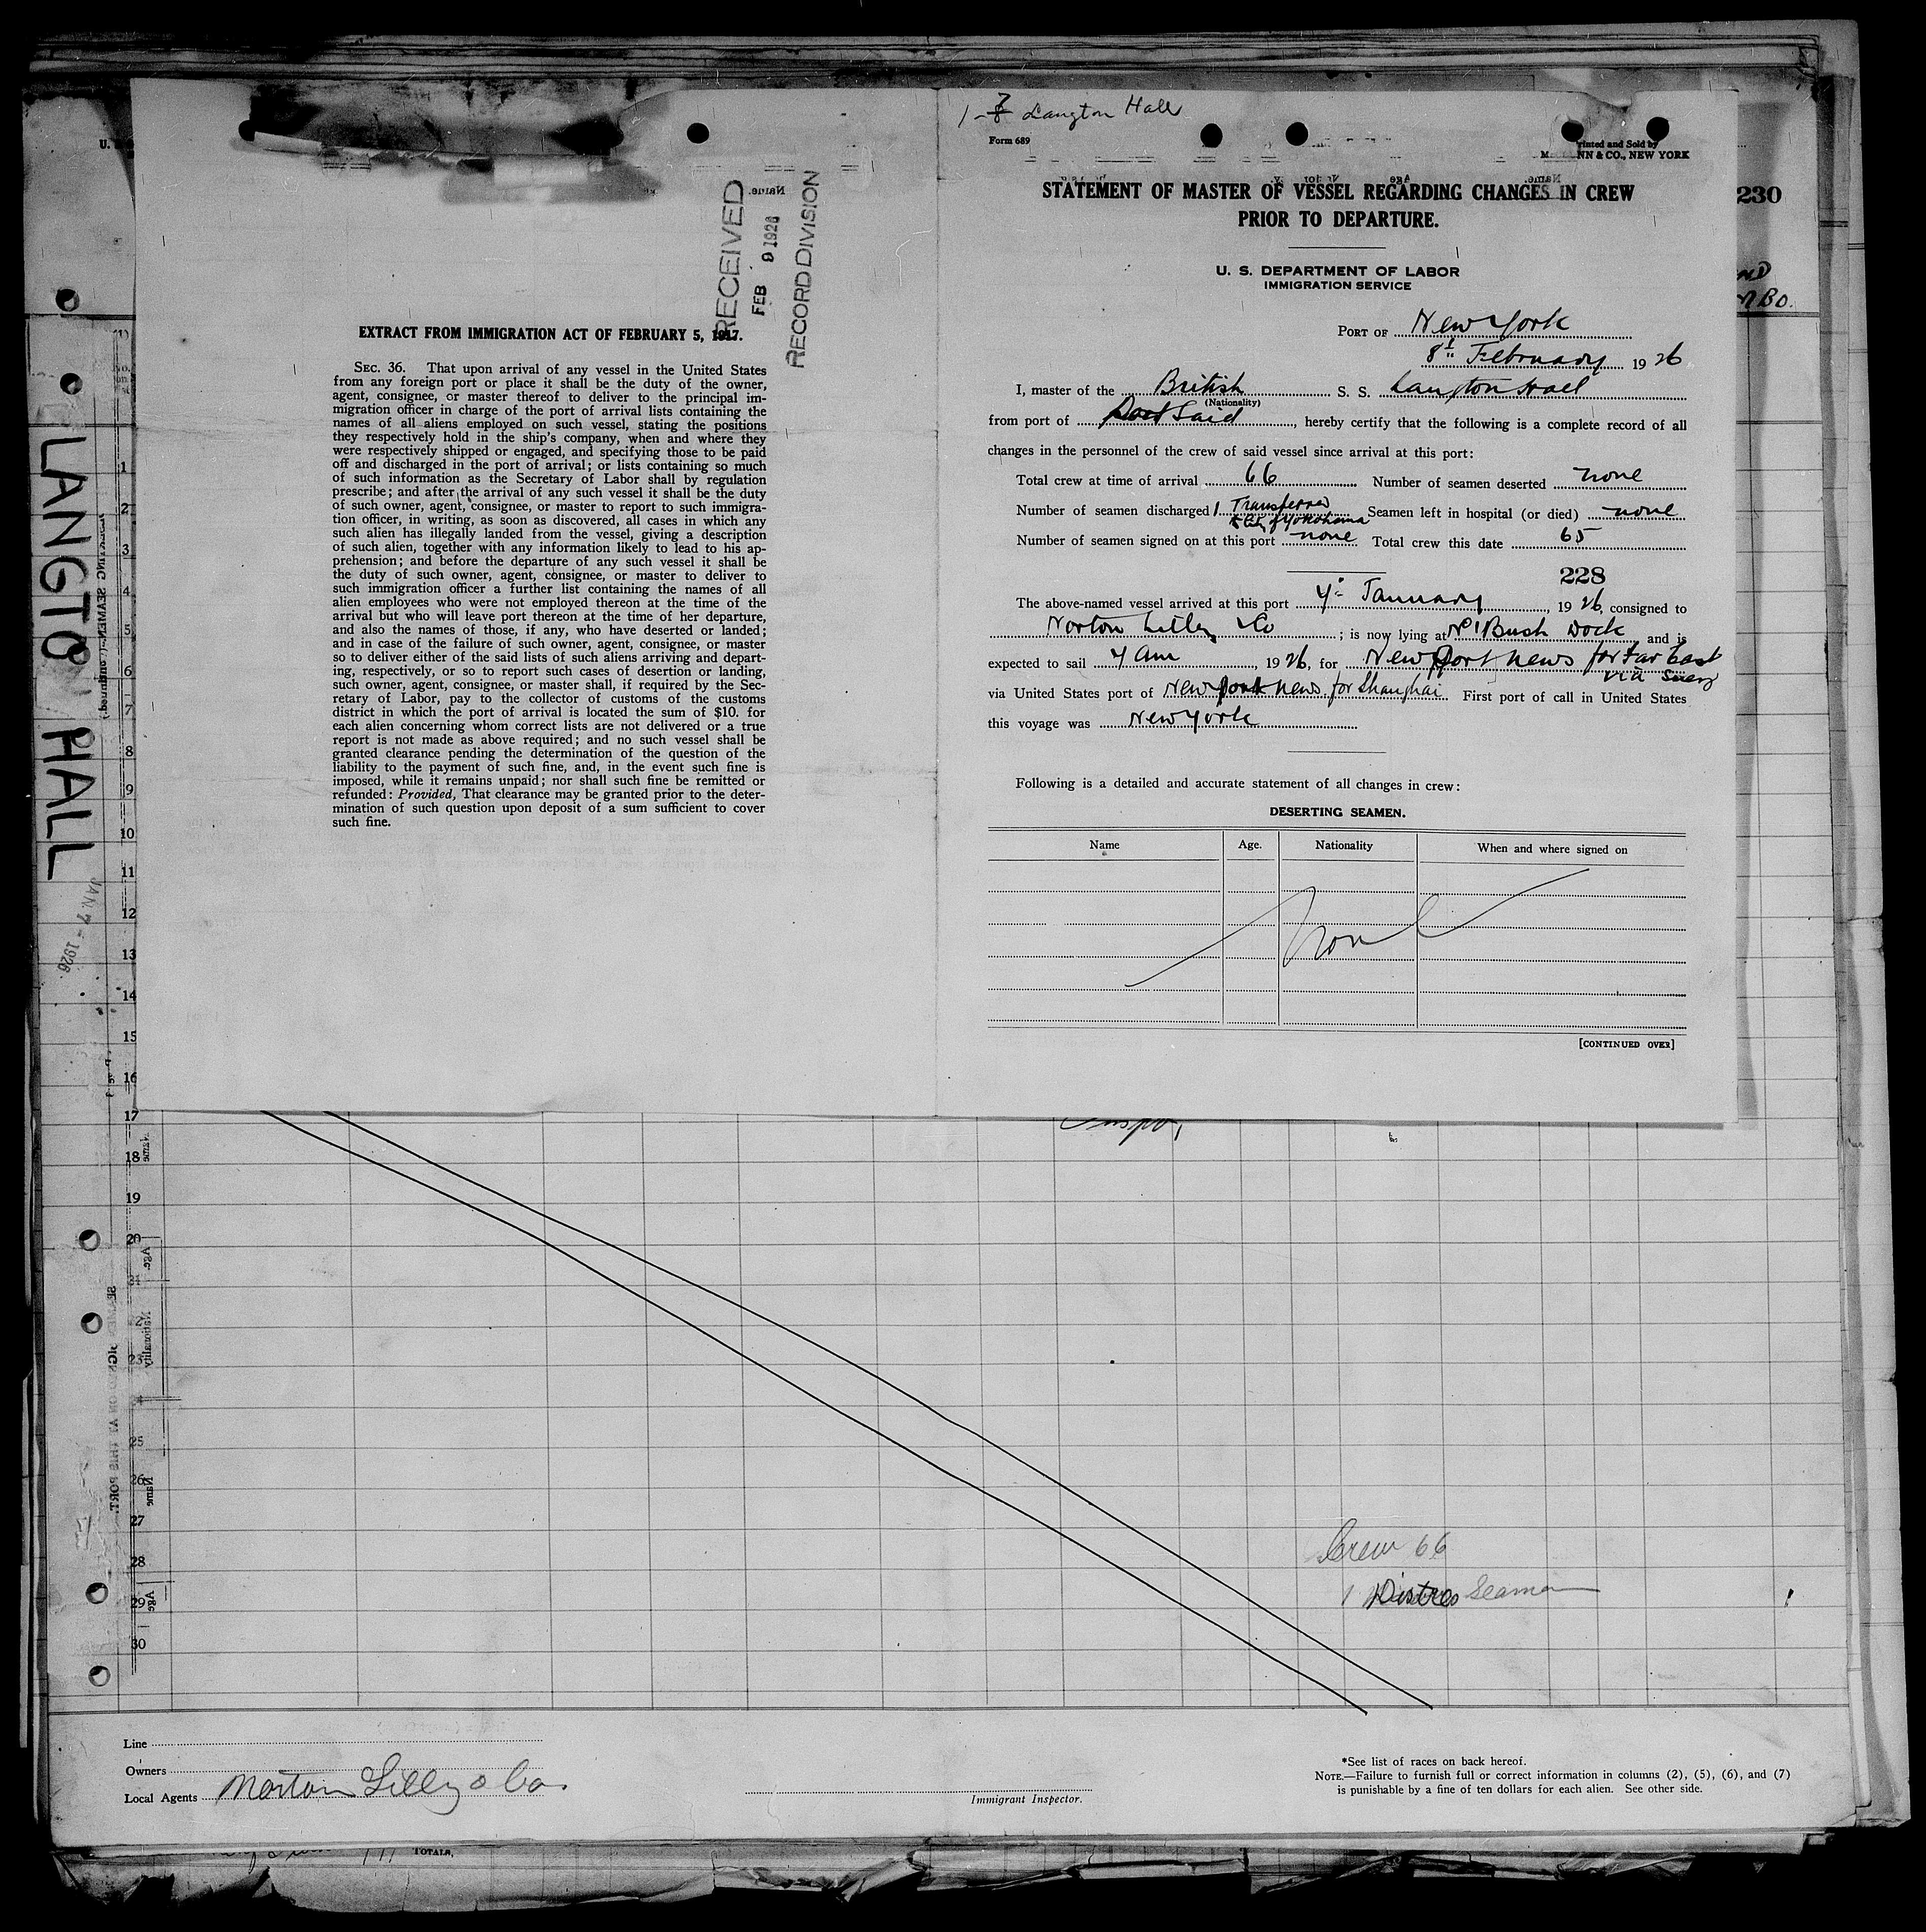 LANGTO HALL
JAN 7 - 1926
RECEIVED
FEB 9 1926
RECORD DIVISION
EXTRACT FROM IMMIGRATION ACT OF FEBRUARY 5, 1917.
SEC. 36. That upon arrival of any vessel in the United States
from any foreign port or place it shall be the duty of the owner,
agent, consignee, or master thereof to deliver to the principal im-
migration officer in charge of the port of arrival lists containing the
names of all aliens employed on such vessel, stating the positions
they respectively hold in the ship's company, when and where they
were respectively shipped or engaged, and specifying those to be paid
off and discharged in the port of arrival; or lists containing so much
of such information as the Secretary of Labor shall by regulation
prescribe; and after the arrival of any such vessel it shall be the duty
of such owner, agent, consignee, or master to report to such immigra-
tion officer, in writing, as soon as discovered, all cases in which any
such alien has illegally landed from the vessel, giving a description
of such alien, together with any information likely to lead to his ap-
prehension; and before the departure of any such vessel it shall be
the duty of such owner, agent, consignee, or master to deliver to
such immigration officer a further list containing the names of all
alien employees who were not employed thereon at the time of the
arrival but who will leave port thereon at the time of her departure,
and also the names of those, if any, who have deserted or landed;
and in case of the failure of such owner, agent, consignee, or master
so to deliver either of the said lists of such aliens arriving and depart-
ing, respectively, or so to report such cases of desertion or landing,
such owner, agent, consignee, or master shall, if required by the Sec-
retary of Labor, pay to the collector of customs of the customs
district in which the port of arrival is located the sum of $10. for
each alien concerning whom correct lists are not delivered or a true
report is not made as above required; and no such vessel shall be
granted clearance pending the determination of the question of the
liability to the payment of such fine, and, in the event such fine is
imposed, while it remains unpaid; nor shall such fine be remitted or
refunded: Provided, That clearance may be granted prior to the deter-
mination of such question upon deposit of a sum sufficient to cover
such fine.
1-7 Langton Hall
Form 689
Printed and Sold by
NN & CO., NEW YORK
STATEMENT OF MASTER OF VESSEL REGARDING CHANGES IN CREW
PRIOR TO DEPARTURE.
U. S. DEPARTMENT OF LABOR
IMMIGRATION SERVICE
PORT OF New York
8th February 1926
I, master of the British S. S. Langton Hall
(Nationality)
from port of Port Said, hereby certify that the following is a complete record of all
changes in the personnel of the crew of said vessel since arrival at this port:
Total crew at time of arrival 66 Number of seamen deserted none
Number of seamen discharged 1 Transferred to City of Yokohama Seamen left in hospital (or died) none
Number of seamen signed on at this port none Total crew this date 65
228
The above-named vessel arrived at this port 7th January, 1926, consigned to
Norton Lilly & Co; is now lying at No 1 Bush Dock and is
expected to sail 7 am, 1926, for Newport News for Far East
via Suez
via United States port of Newport News for Shanghai First port of call in United States
this voyage was New York
Following is a detailed and accurate statement of all changes in crew:
DESERTING SEAMEN.
Name Age. Nationality When and where signed on
None
[CONTINUED OVER]
230
1
2
3
4
5
6
7
8
9
10
11
12
13
14
15
16
17
18
19
20
23
25
26
27
28
29
30
Crew 66
1 Distres Seaman
Line
Owners
Local Agents Norton Lilly & Co.
Immigrant Inspector.
*See list of races on back hereof.
NOTE.—Failure to furnish full or correct information in columns (2), (5), (6), and (7)
is punishable by a fine of ten dollars for each alien. See other side.
TOTALS.